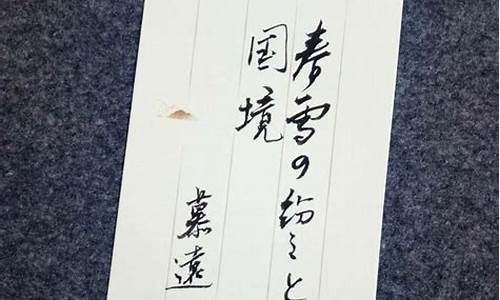 春雪の紛々と
国境
慕遠